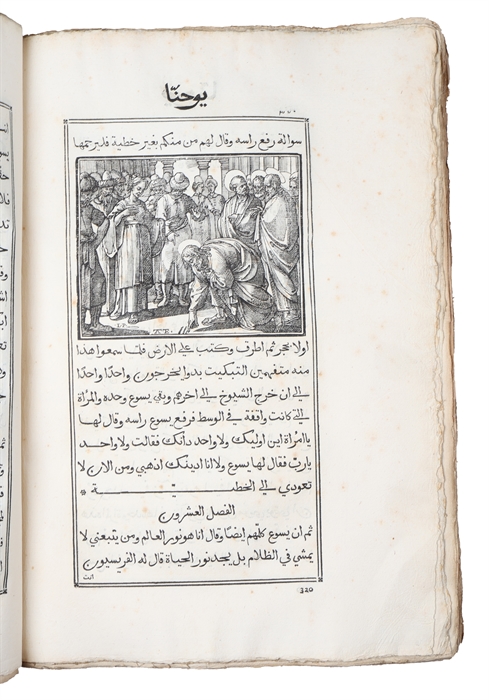 يوحنّا
٣٢٠
سواله رفع راسه وقال لهم من منكم بغير خطية فليرجمها
L·P·
A·T·F·
اولا بحجر ثم اطرف وكتب على الارض فلمّا سمعوا هذا
منه متفهمين التبكيت بدوا يخرجون واحدًا واحدًا
الى ان خرج الشيوخ الى اخرهم وبقى يسوع وحده والمرأة
التى كانت واقفة فى الوسط فرفع يسوع راسه وقال لها
يا امرأة اين اوليك ولا واحد دانك فقالت ولا واحد
يا ربّ فقال لها يسوع ولا انا ادينك اذهبي ومن الان لا
تعودي الى الخطيّـة *
الفصل العشرون
ثم ان يسوع كلّمهم ايضًا وقال انا هو نور العالم ومن يتبعني لا
يمشي فى الظلام بل يجد نور الحياة قال له الفريسيون
انت
320